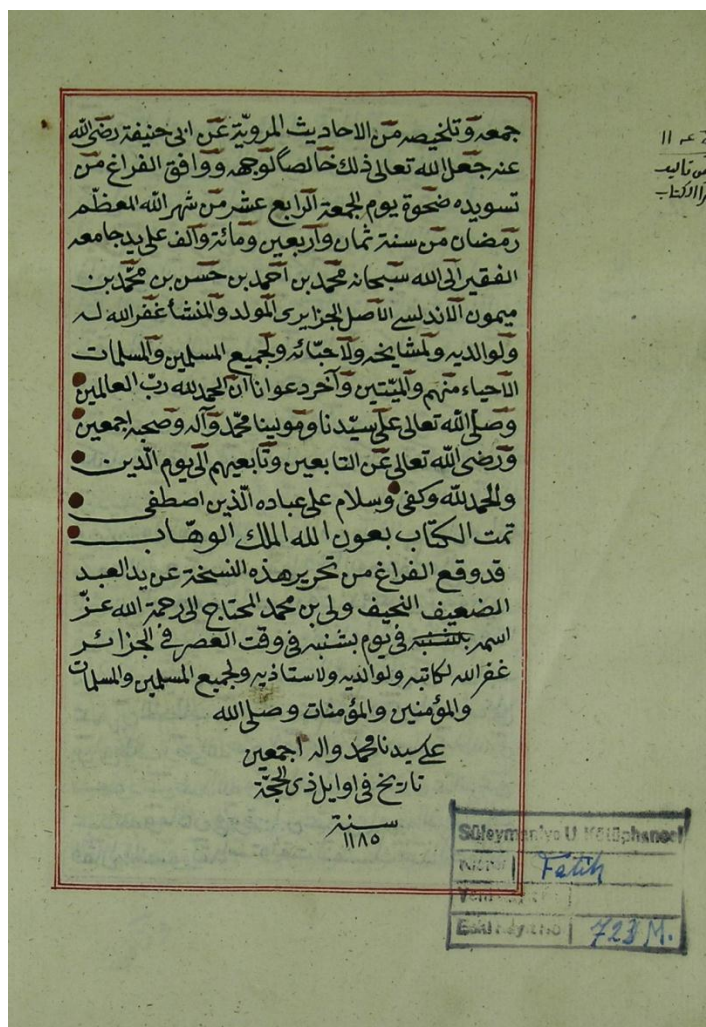 جمعه وتلخيصه من الاحاديث المروية عن ابى حنيفة رضى الله
عنه جعل الله تعالى ذلك خالصا لوجهه ووافق الفراغ من
تسويده ضحوة يوم الجمعة الرابع عشر من شهر الله المعظم
رمضان من سنة ثمان واربعين ومائة والف على يد جامعه
الفقير الى الله سبحانه محمد بن احمد بن حسن بن محمد بن
ميمون الاندلسى الاصل الجزايرى المولد والمنشأ غفر الله له
ولوالديه ولمشايخه ولاحبائه ولجميع المسلمين والمسلمات
الاحياء منهم والميتين وآخر دعوانا ان الحمد لله رب العالمين
وصلى الله تعالى على سيدنا ومولينا محمد وآله وصحبه اجمعين
ورضى الله تعالى عن التابعين وتابعيهم الى يوم الدين
والحمد لله وكفى وسلام على عباده الذين اصطفى
تمت الكتاب بعون الله الملك الوهاب
قد وقع الفراغ من تحرير هذه النسخة عن يد العبد
الضعيف النحيف ولى بن محمد المحتاج الى رحمة الله عز
اسمه فى يوم بشنبه فى وقت العصر فى الجزائر
غفر الله لكاتبه ولوالديه ولاستاذيه ولجميع المسلمين والمسلمات
والمؤمنين والمؤمنات وصلى الله
على سيدنا محمد واله اجمعين
تاريخ فى اوايل ذى الحجة
سنة
١١٨٥
Süleymaniye U. Kütüphanesi
Kısmı Fatih
Yeni Kayıt No
Eski Kayıt No 723 M.